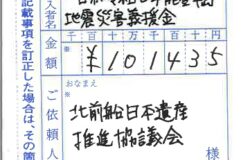 地震災害義援金
加入者名
金額
千百十万千百十円
¥101435
おなまえ
ご依頼人
北前船日本遺産
推進協議会
記載事項を訂正した場合は、その箇